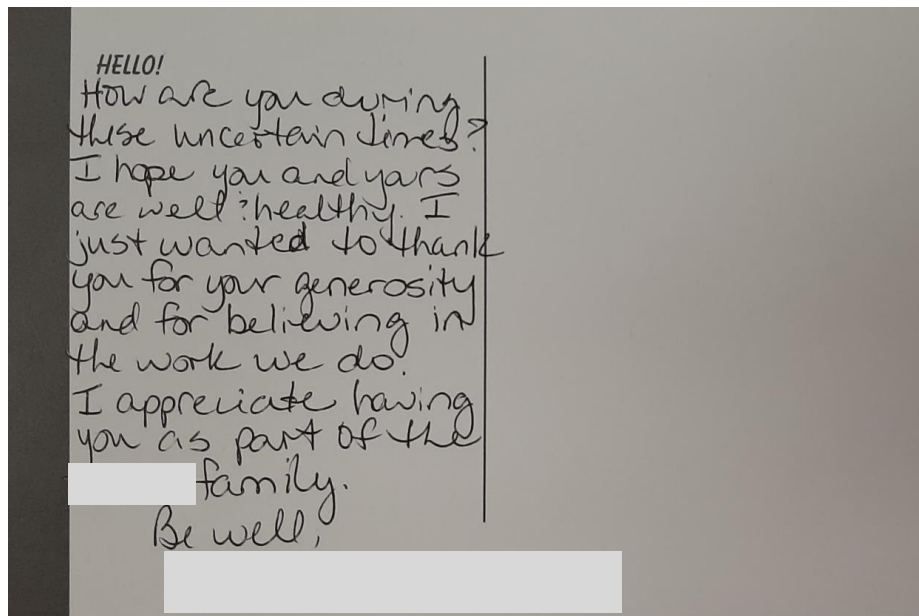 HELLO!
How are you during
these uncertain times?
I hope you and yours
are well & healthy. I
just wanted to thank
you for your generosity
and for believing in
the work we do.
I appreciate having
you as part of the
family.
Be well,